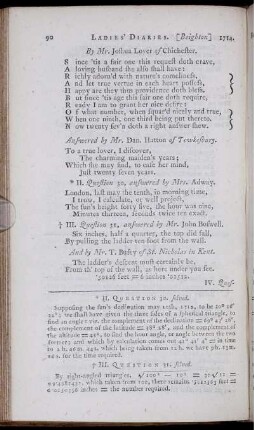 90 LADIES' DIARIES. [Beighton] 1714.
By Mr. Joshua Lover of Chichester.
Since 'tis a fair one this request doth crave,
A loving husband she also shall have;
Richly adorn'd with nature's comeliness,
And let true vertue in each heart possess,
Happy are they thus providence doth bless.
But since 'tis age this fair one doth require,
Ready I am to grant her nice desire:
Of what number, when squar'd nicely and true,
When one ninth, one third being put thereto,
Now twenty six's doth a right answer shew.
Answered by Mr. Dan. Hatton of Tewkesbury.
To a true lover, I discover,
The charming maiden's years;
Which she may find, to ease her mind,
Just twenty seven years.
* II. Question 30, answered by Mrs. Adway.
London, last may the tenth, in morning time,
I trow, I calculate, or well project,
The sun's height forty five, the hour was nine,
Minutes thirteen, seconds twice ten exact.
† III. Question 31, answered by Mr. John Boswell.
Six inches, half a quarter, the top did fall,
By pulling the ladder ten foot from the wall.
And by Mr. T. Busby of St. Nicholas in Kent.
The ladder's descent must certainly be,
From th' top of the wall, as here under you see.
feet = 6 inches
IV. Quest.
* II. QUESTION 30. solved.
Supposing the sun's declination may 10th, to be 20°
we shall have given the three sides of a spherical triangle, to
find an angle; viz. the complement of the declination =
the complement of the latitude = and the complement of the
altitude = 45°, to find the hour angle, or angle between the two
former; and which by calculation comes out = in time
to which being taken from 12 h. we have
for the time required.
† III. QUESTION 31. solved.
By right-angled triangles,
which taken from 100, there remains
the number required.